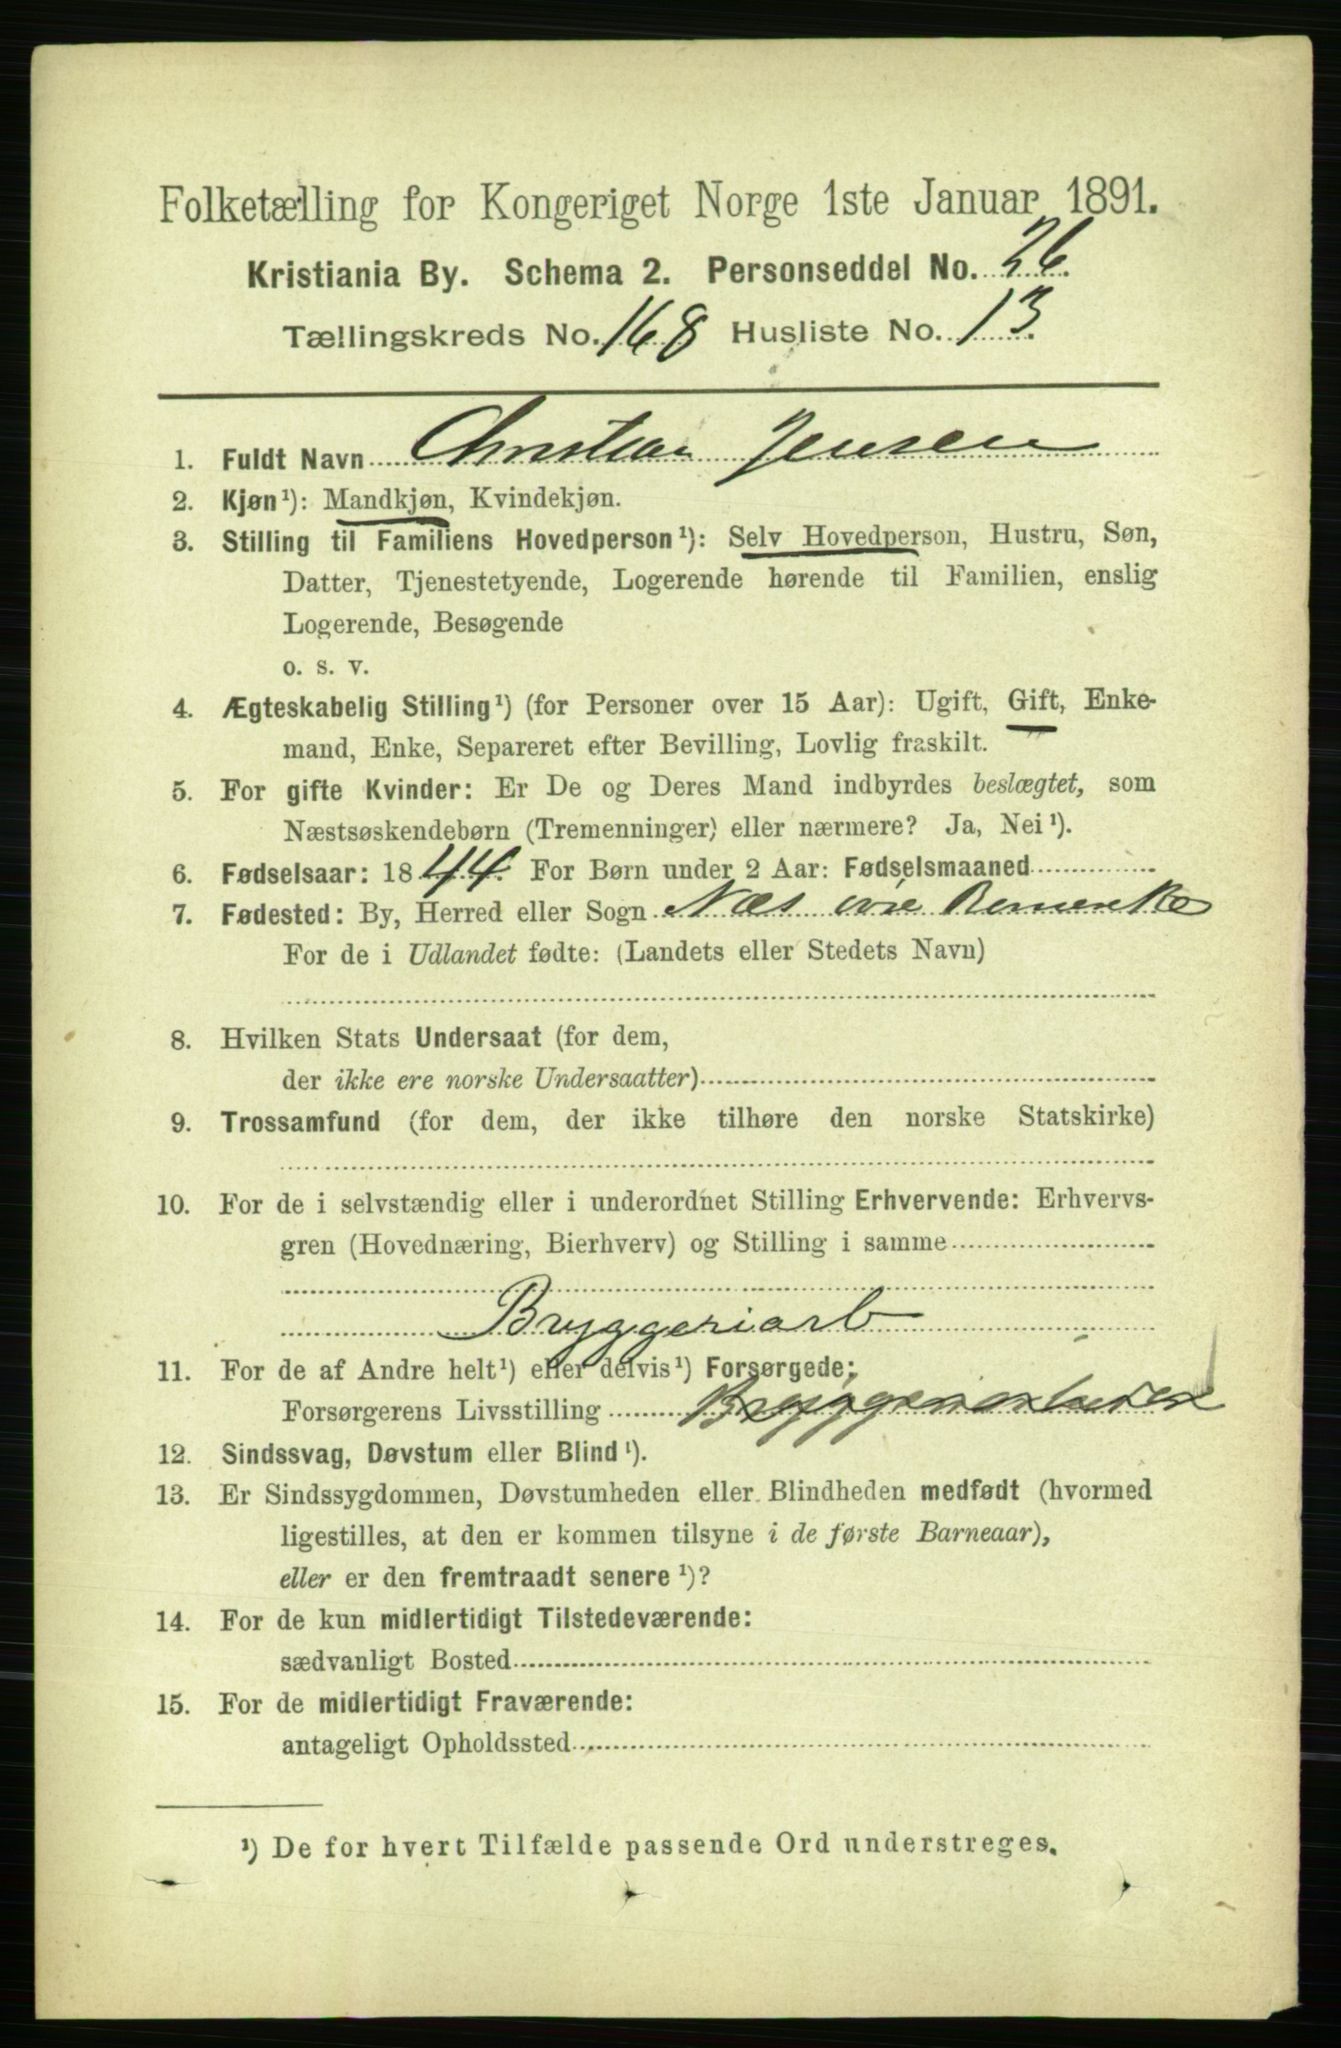 Folketælling for Kongeriget Norge 1ste Januar 1891.
Kristiania By. Schema 2. Personseddel No. 26.
Tællingskreds No. 168 Husliste No. 13.
1. Fuldt Navn Christian Jensen
2. Kjøn¹): Mandkjøn, Kvindekjøn.
3. Stilling til Familiens Hovedperson¹): Selv Hovedperson, Hustru, Søn,
Datter, Tjenestetyende, Logerende hørende til Familien, enslig
Logerende, Besøgende
o. s. v.
4. Ægteskabelig Stilling¹) (for Personer over 15 Aar): Ugift, Gift, Enke-
mand, Enke, Separeret efter Bevilling, Lovlig fraskilt.
5. For gifte Kvinder: Er De og Deres Mand indbyrdes beslægtet, som
Næstsøskendebørn (Tremenninger) eller nærmere? Ja, Nei¹).
6. Fødselsaar: 1844. For Børn under 2 Aar: Fødselsmaaned
7. Fødested: By, Herred eller Sogn Næs Romerike
For de i Udlandet fødte: (Landets eller Stedets Navn)
8. Hvilken Stats Undersaat (for dem,
der ikke ere norske Undersaatter)
9. Trossamfund (for dem, der ikke tilhøre den norske Statskirke)
10. For de i selvstændig eller i underordnet Stilling Erhvervende: Erhvervs-
gren (Hovednæring, Bierhverv) og Stilling i samme
Bryggeriarb
11. For de af Andre helt¹) eller delvis¹) Forsørgede:
Forsørgerens Livsstilling Bryggeriarbeider
12. Sindssvag, Døvstum eller Blind¹).
13. Er Sindssygdommen, Døvstumheden eller Blindheden medfødt (hvormed
ligestilles, at den er kommen tilsyne i de første Barneaar),
eller er den fremtraadt senere¹)?
14. For de kun midlertidigt Tilstedeværende:
sædvanligt Bosted
15. For de midlertidigt Fraværende:
antageligt Opholdssted
¹) De for hvert Tilfælde passende Ord understreges.